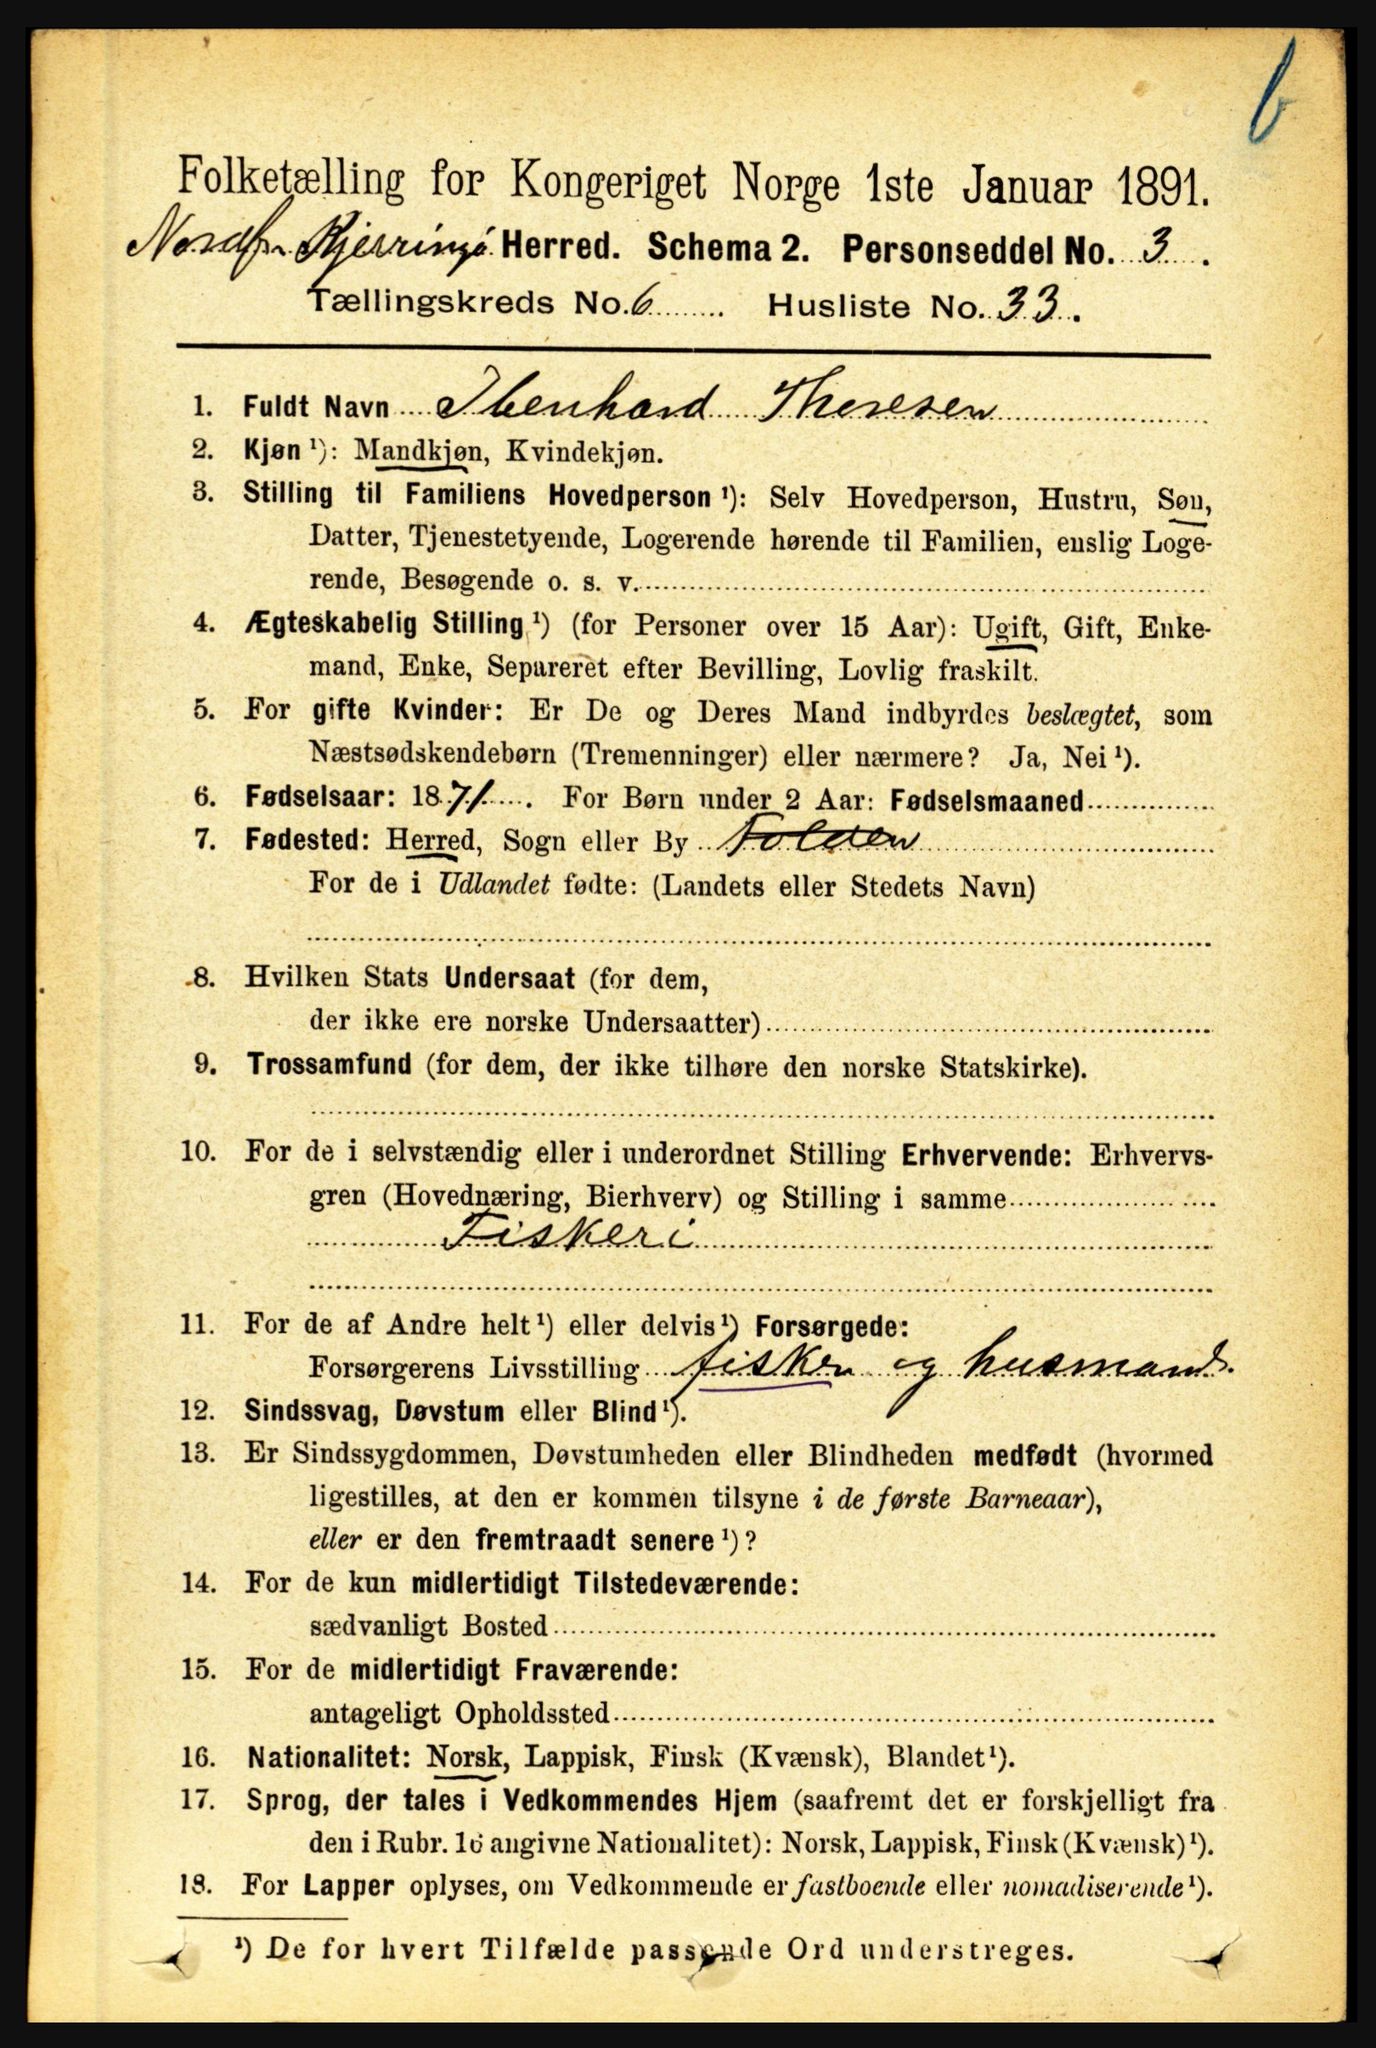 b
Folketælling for Kongeriget Norge 1ste Januar 1891.
Kjerringø Herred. Schema 2. Personseddel No. 3.
Tællingskreds No. 6 Husliste No. 33.
1. Fuldt Navn Ibenhard Theresen
2. Kjøn ¹): Mandkjøn, Kvindekjøn.
3. Stilling til Familiens Hovedperson ¹): Selv Hovedperson, Hustru, Søn,
Datter, Tjenestetyende, Logerende hørende til Familien, enslig Loge-
rende, Besøgende o. s. v.
4. Ægteskabelig Stilling ¹) (for Personer over 15 Aar): Ugift, Gift, Enke-
mand, Enke, Separeret efter Bevilling, Lovlig fraskilt.
5. For gifte Kvinder: Er De og Deres Mand indbyrdes beslægtet, som
Næstsødskendebørn (Tremenninger) eller nærmere? Ja, Nei ¹).
6. Fødselsaar: 1871. For Børn under 2 Aar: Fødselsmaaned
7. Fødested: Herred, Sogn eller By Folden
For de i Udlandet fødte: (Landets eller Stedets Navn)
8. Hvilken Stats Undersaat (for dem,
der ikke ere norske Undersaatter)
9. Trossamfund (for dem, der ikke tilhøre den norske Statskirke).
10. For de i selvstændig eller i underordnet Stilling Erhvervende: Erhvervs-
gren (Hovednæring, Bierhverv) og Stilling i samme
Fiskeri
11. For de af Andre helt ¹) eller delvis ¹) Forsørgede:
Forsørgerens Livsstilling fisker og husmand.
12. Sindssvag, Døvstum eller Blind ¹).
13. Er Sindssygdommen, Døvstumheden eller Blindheden medfødt (hvormed
ligestilles, at den er kommen tilsyne i de første Barneaar),
eller er den fremtraadt senere ¹)?
14. For de kun midlertidigt Tilstedeværende:
sædvanligt Bosted
15. For de midlertidigt Fraværende:
antageligt Opholdssted
16. Nationalitet: Norsk, Lappisk, Finsk (Kvænsk), Blandet ¹).
17. Sprog, der tales i Vedkommendes Hjem (saafremt det er forskjelligt fra
den i Rubr. 16 angivne Nationalitet): Norsk, Lappisk, Finsk (Kvænsk) ¹).
18. For Lapper oplyses, om Vedkommende er fastboende eller nomadiserende ¹).
¹) De for hvert Tilfælde passende Ord understreges.